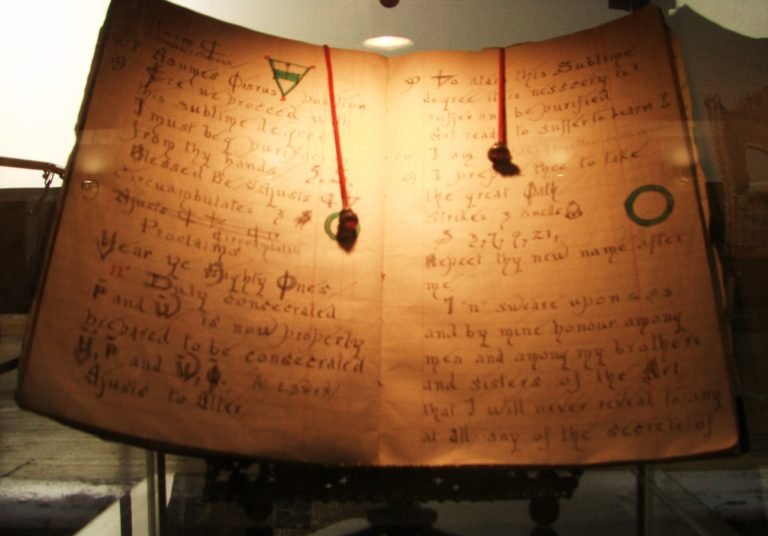 Assumes Osiris position
Ere we proceed with
this sublime degree
I must beg purification
from thy hands
Blessed Be Adjusts
Circumambulates 3
Ajusts
Proclaims
Hear ye Mighty Ones
"n" Duly consecrated
and is now properly
prepared to be consecrated
and
Ajusts to Alter
To atain this Sublime
degree it is nessecery to
suffer and be purified
Art ready to suffer to learn ?
I am
I prepare thee to take
the great Oath
Strikes 3 Knells
3, 7, 9, 21,
Repeet thy new name after
me
I "n" sweare upon
and by mine honour among
men and among my brothers
and sisters of the Art
that I will never reveal to any
at all any of the secrets of